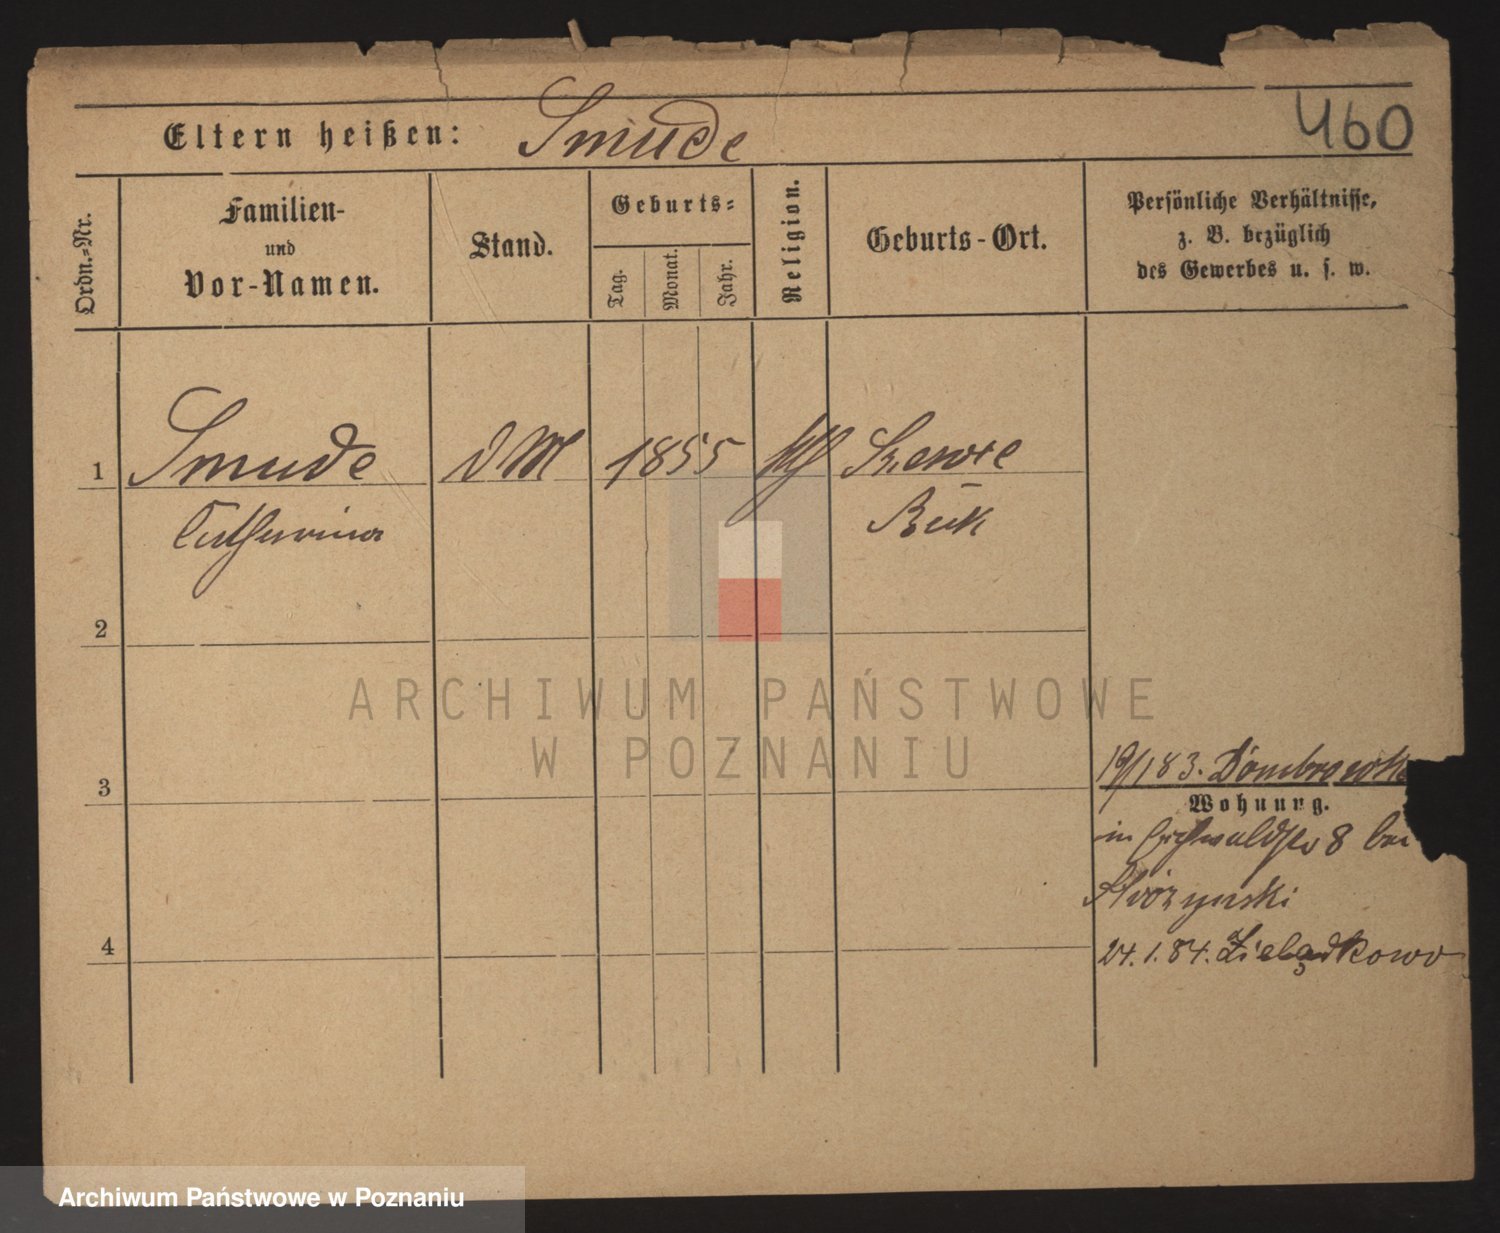 460
Eltern heißen: Smude
Ordn.-Nr.
Familien-
und
Vor-Namen.
Stand.
Geburts-
Tag.
Monat.
Jahr.
Religion.
Geburts-Ort.
Persönliche Verhältnisse,
z. B. bezüglich
des Gewerbes u. s. w.
1 Smude DM 1855 kth Szewce
Catharina Buk
2
ARCHIWUM PAŃSTWOWE
W POZNANIU
19/1 83. Dombrowka
3
Wohnung.
in 8 bei
4
24.1.84. Zielądkowo
Archiwum Państwowe w Poznaniu